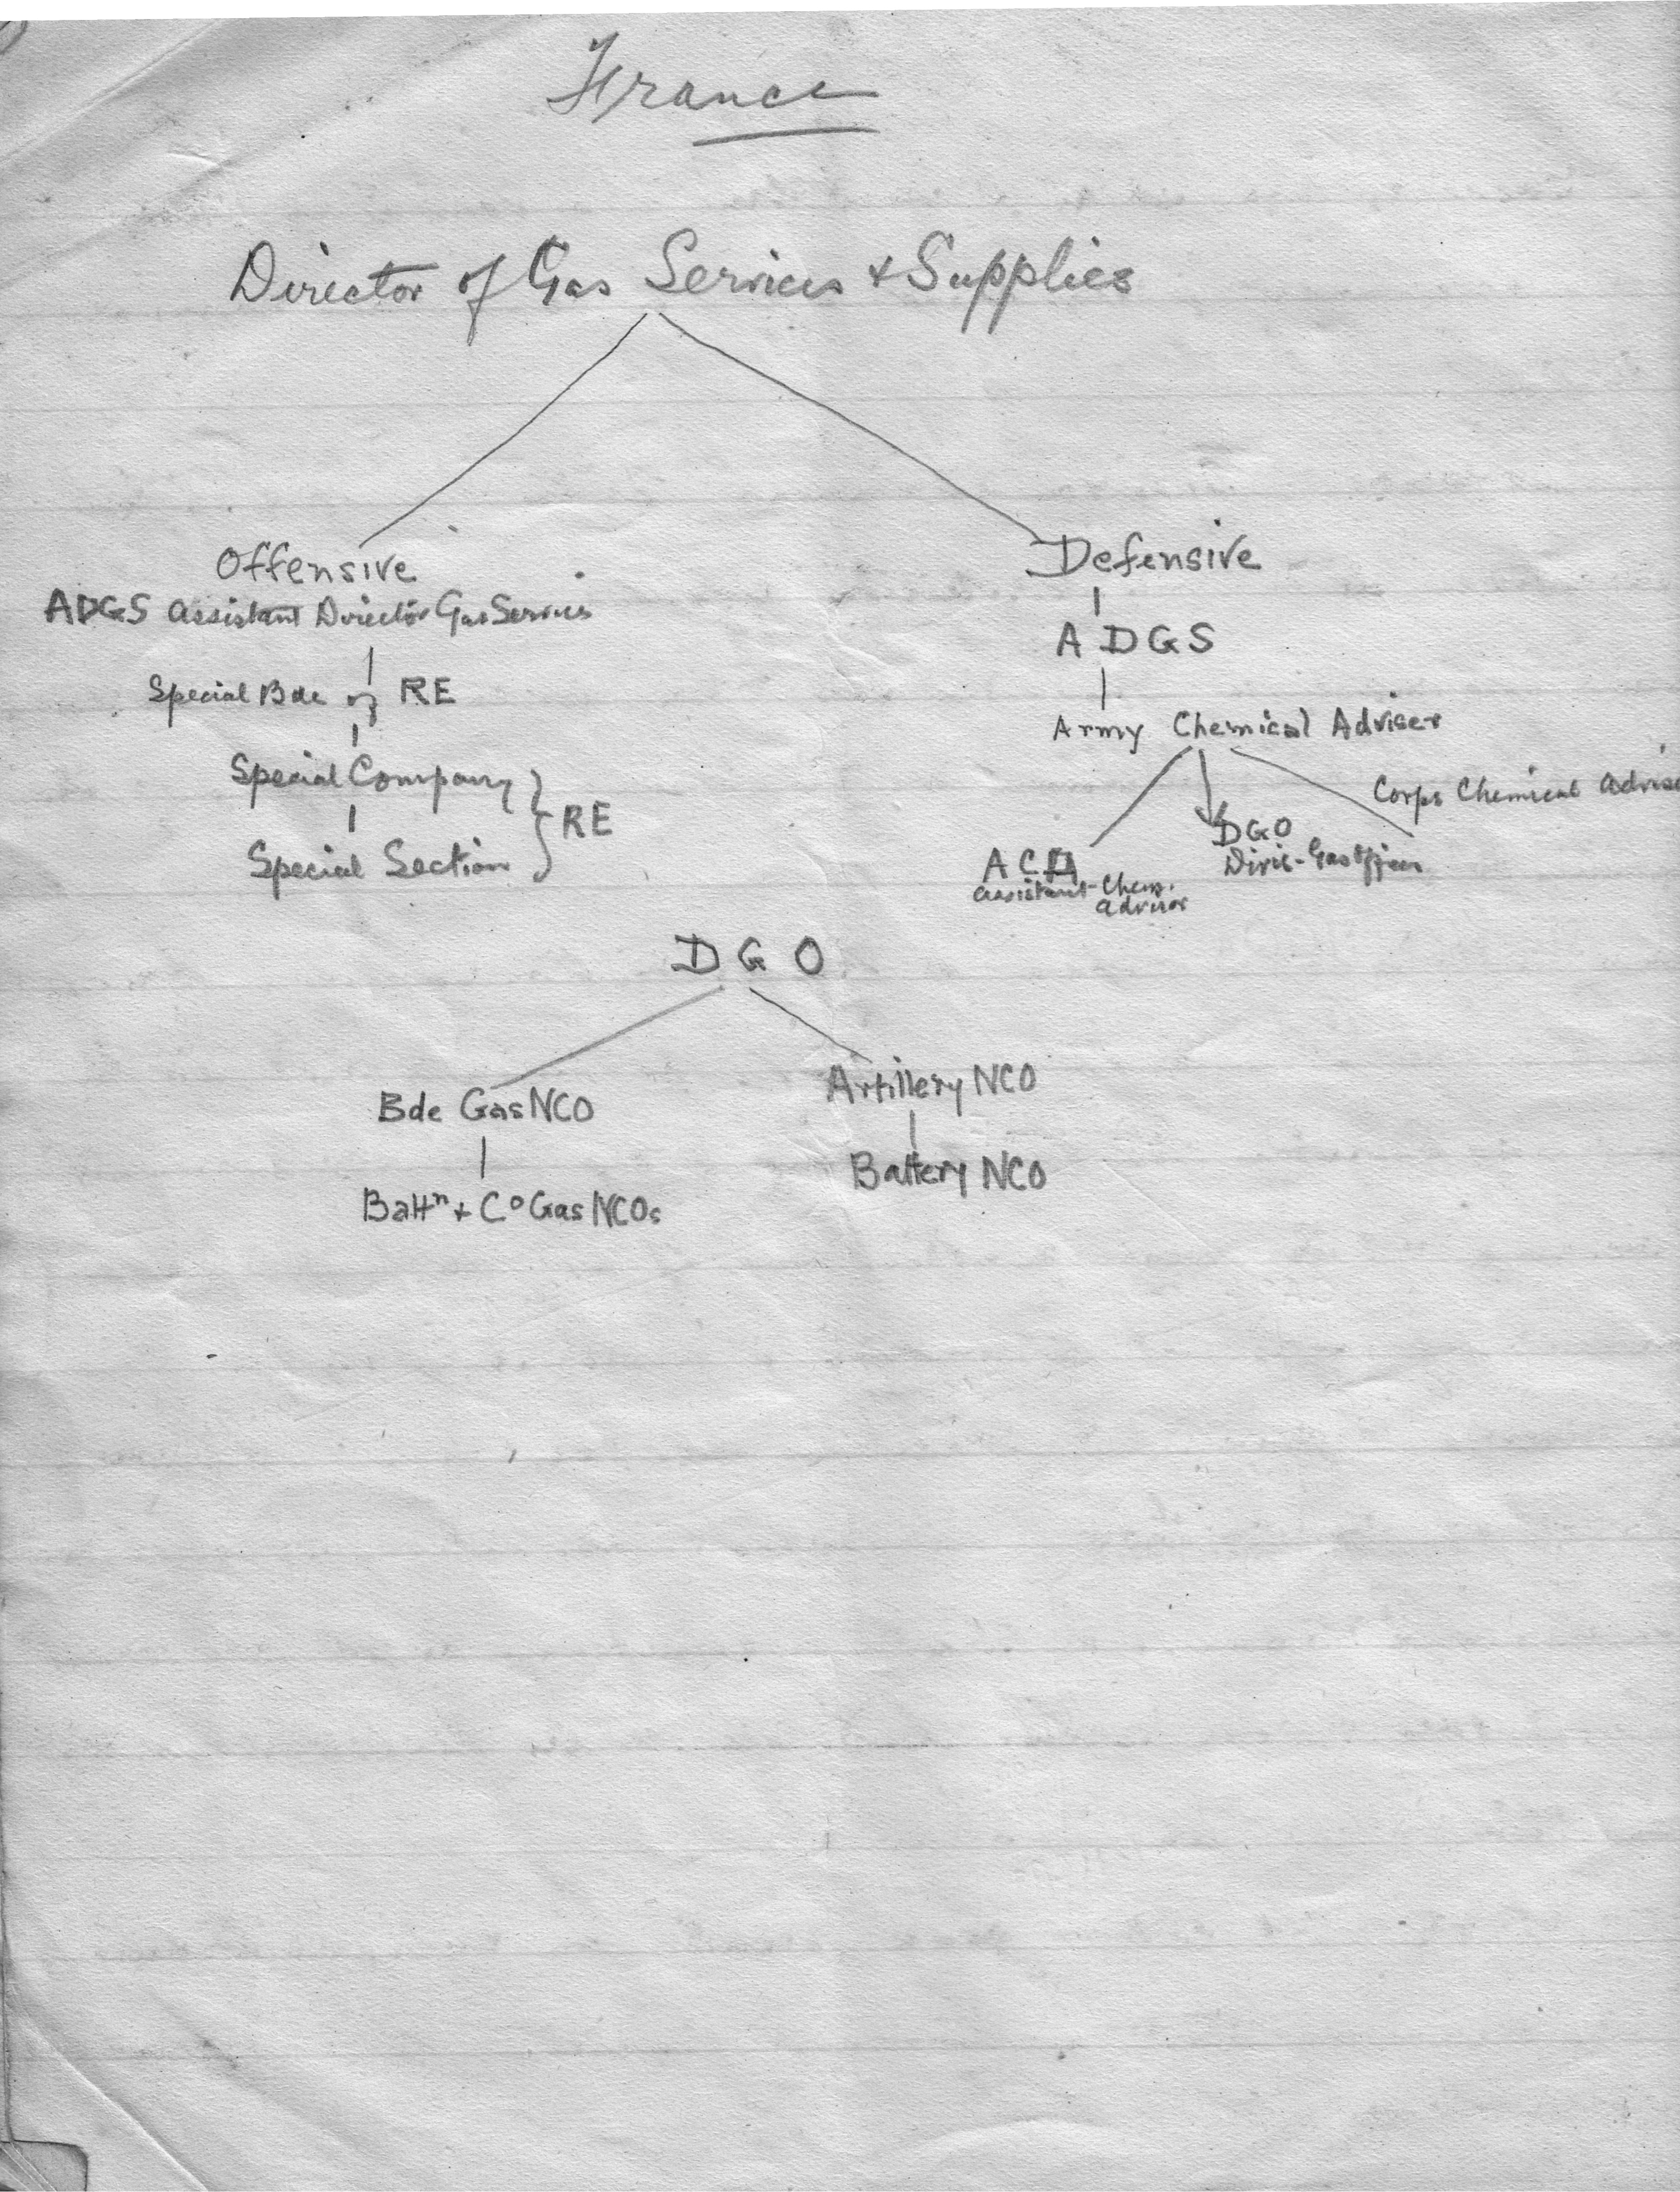 France
Director of Gas Services + Supplies
Offensive
ADGS Assistant Director Gas Services
Special Bde of RE
Special Company
Special Section
RE
Defensive
ADGS
Army Chemical Adviser
Corps Chemical Advise
DGO
Divis-Gas Officer
ACA
Assistant-Chem.
Advisor
DGO
Bde Gas NCO
Artillery NCO
Battery NCO
Battn + Co Gas NCOs